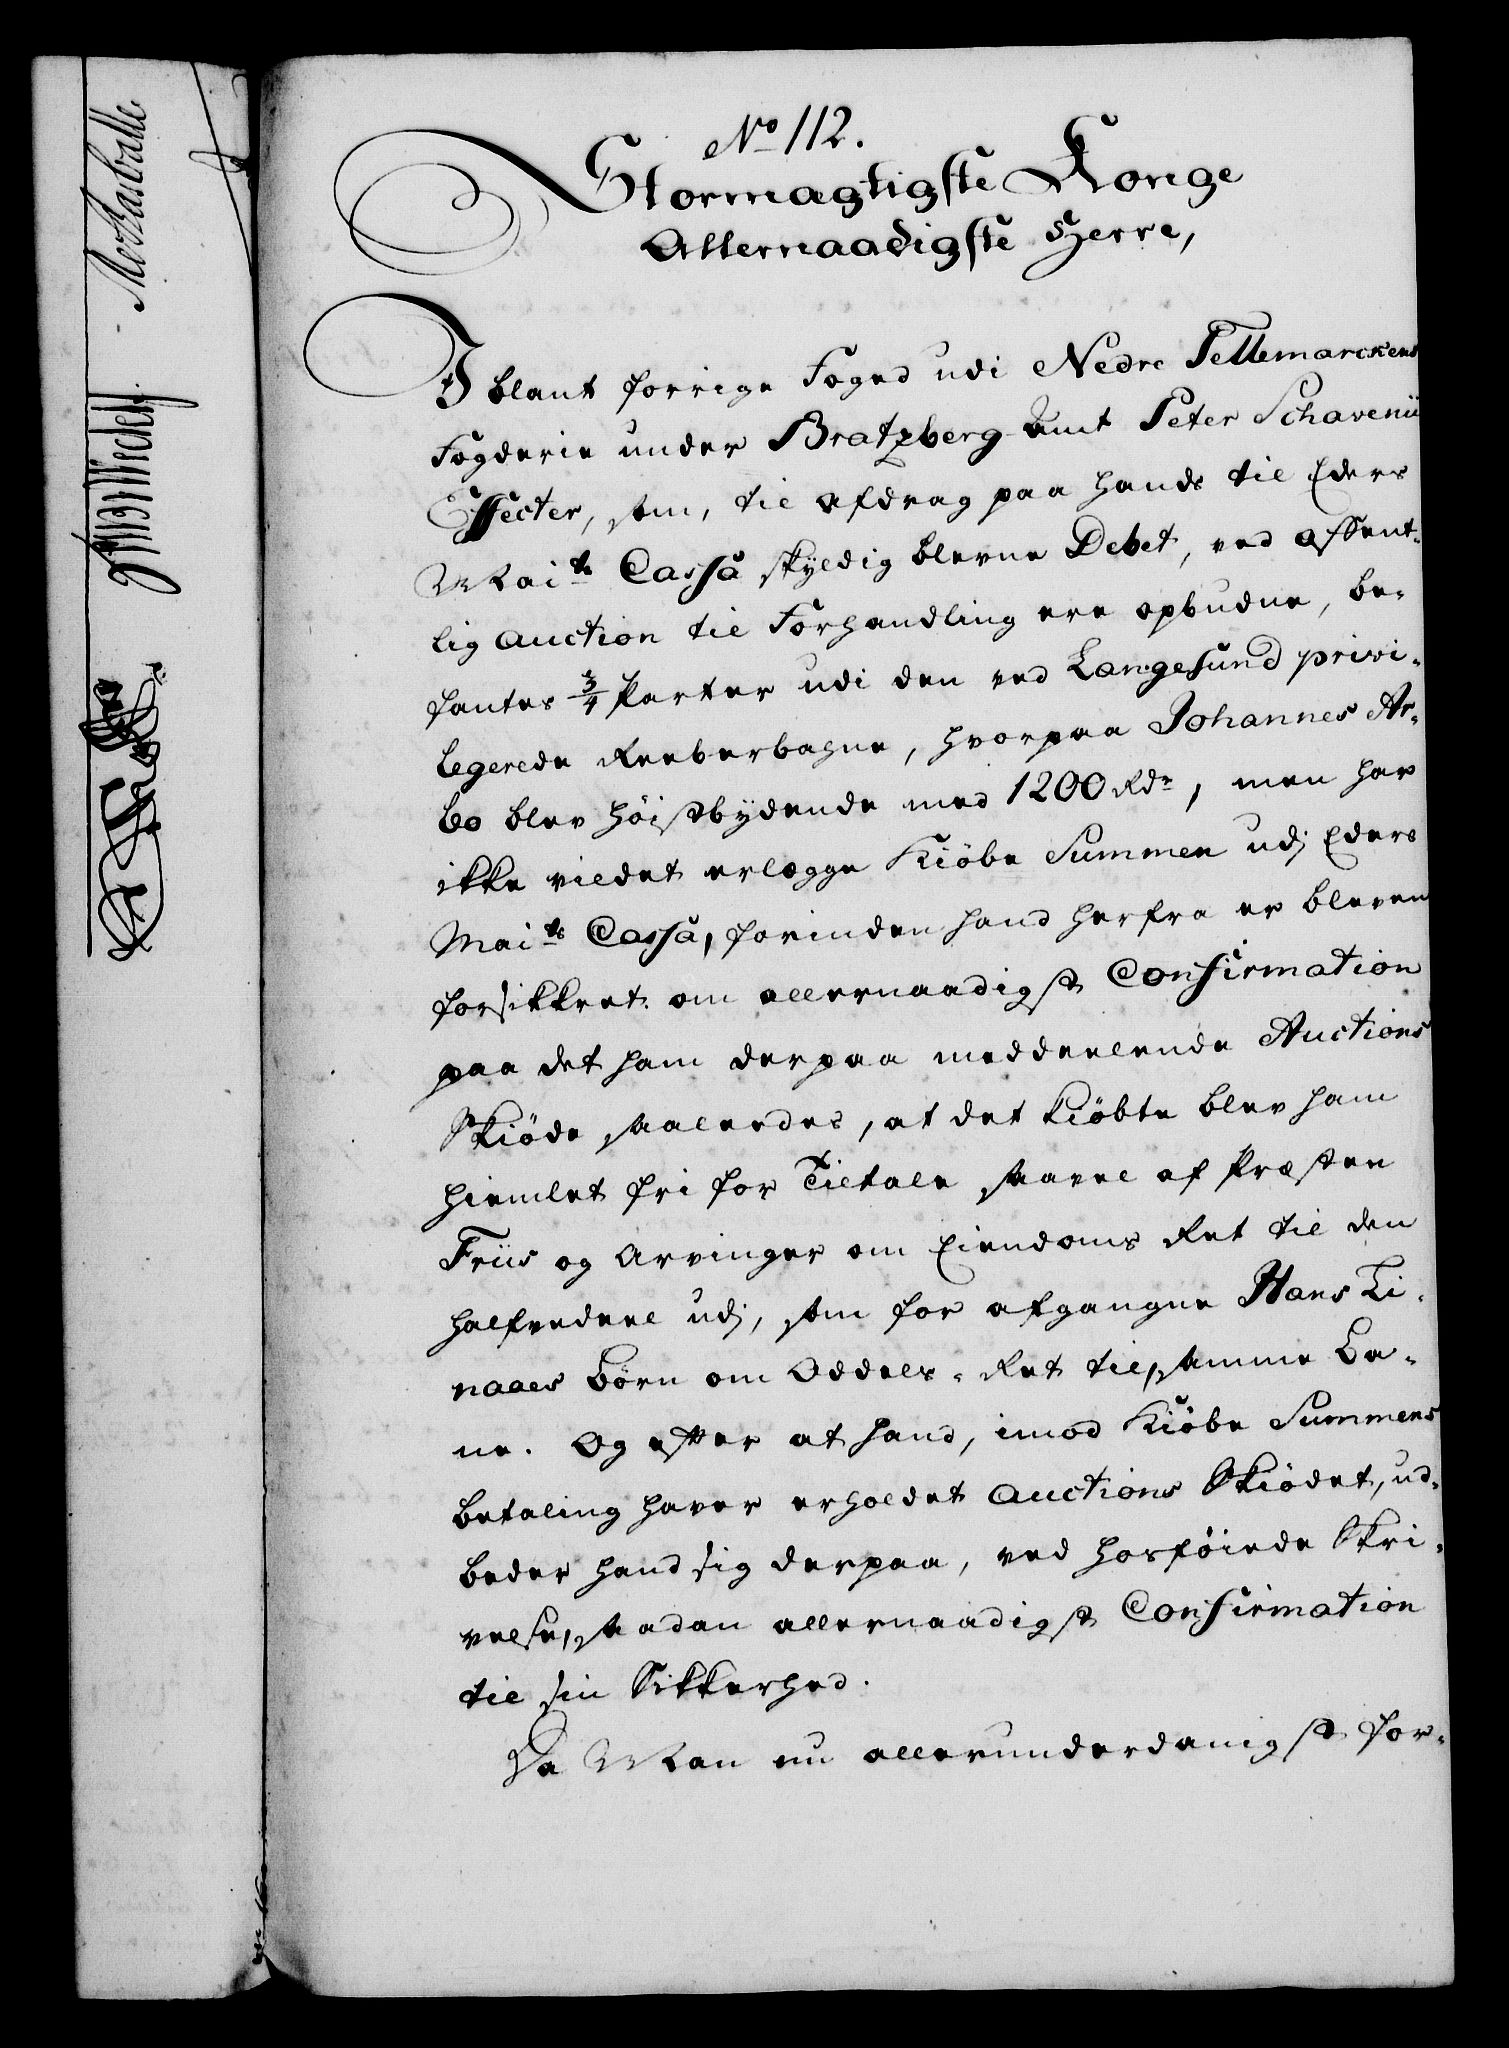 No 112.
Stormægtigste Konge
Allernaadigste Herre,
Iblant forrige Foged udi Nedre Tellemarckens
Fogderie under Bratzberg Amt Peter Schavenii
Effecter, som, til Afdrag paa hands til Eders
Maits Cassa skyldig blevne Debet, ved offent-
lig Auction til Forhandling ere opbudne, be-
fantes 3/4 Parter udi den ved Langesund privi-
legerede Reeberbahne, hvorpaa Johannes Ar-
bo blev høistbydende med 1200 Rdr, men har
ikke vildet erlægge Kiöbe Summen udj Eders
Maits Cassa, forinden hand herfra er bleven
forsikkret om allernaadigst Confirmation
paa det ham derpaa meddeelende Auctions
Skiöde saaleedes, at det kiöbte blev ham
hiemlet fri for Tiltale saavel af Præsten
Friis og Arvinger om Eiendoms Ret til den
halfvedeel udj, som for afgangne Hans Li-
naaes Börn om Oddels-Ret til samme Ba-
ne. Og efter at hand, imod Kiöbe Summens
betaling haver erholdet Auctions Skiödet, ud-
beder hand sig derpaa, ved hosföiede Skri-
velse, saadan allernaadigst Confirmation
til sin Sikkerhed.
Da Man nu allerunderdanigst for-